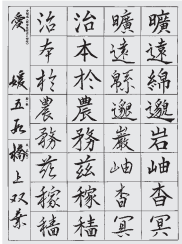 曠遠綿邈岩岫杳冥
曠遠緜邈巖岫杳冥
治本於農務茲稼穡
治本於農務茲稼穡
愛媛五 橋上双葉